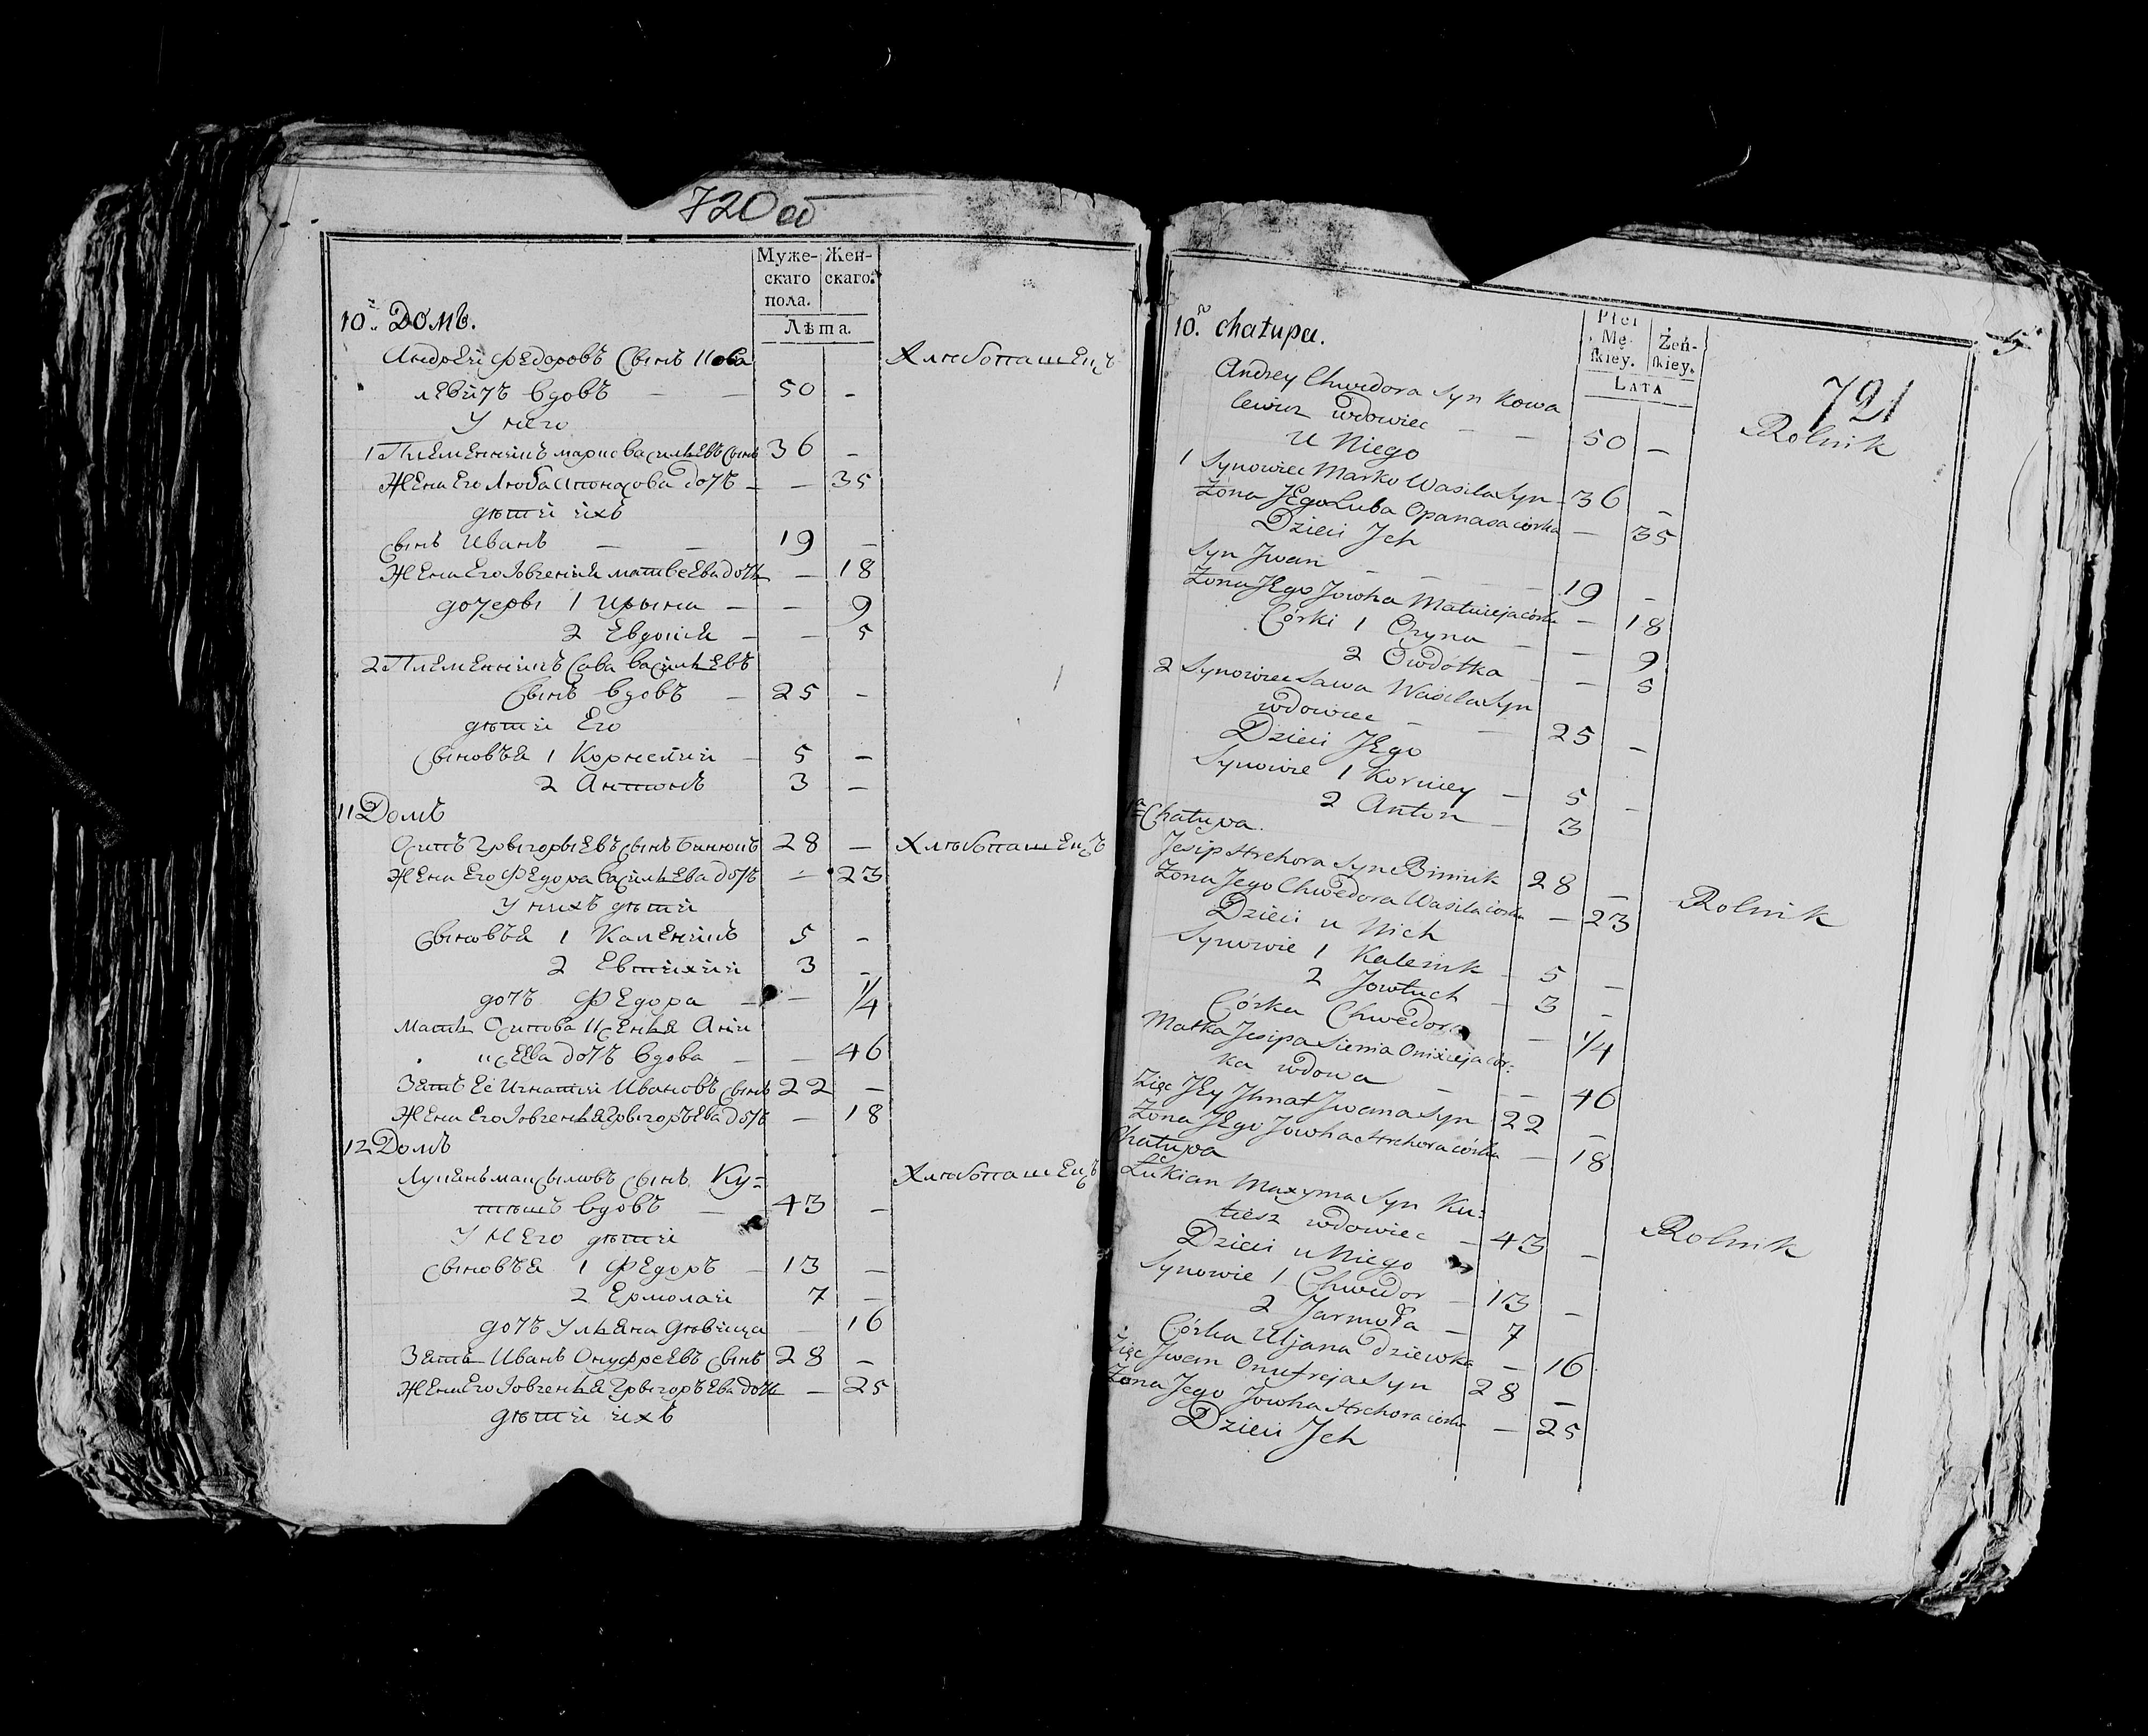 720 об
Муже-
скаго
пола.
Жен-
скаго.
Лѣта.
10. Домъ.
Андрей Федоровъ Сынъ Кова
левичъ вдовъ — — 50 -
У него
Хлѣбопашецъ
1 Племенникъ марко Васильевъ Сынъ 36 -
Жена Его Люба Апонасова дочь — — 35
дѣти ихъ
Сынъ Иванъ — — 19 —
Жена Его Ювгенія матвеева дочь — 18
дочеры 1 Ирына — — 9
2 Евдокія — — 5
2 Племенникъ Сава Васильевъ
Сынъ вдовъ — 25 -
дѣти Его
Сыновья 1 Корнелий — 5 -
2 Антонъ 3 -
11 Домъ
Осипъ Грыгорыевъ Сынъ Бинюкъ 28 — Хлѣбопашецъ
Жена Его Федора Васильева дочь — 23
У нихъ дѣти
Сыновья 1 Каленикъ 5 -
2 Евтихий 3 -
дочь Федора — — 1/4
Мать Осипова Ксенья Они
кеева дочь вдова — — 46
Зять Её Игнатий Ивановъ Сынъ 22 —
Жена Его Ювгенья Грыгорьева дочь — 18
12 Домъ
Лукянъ максымовъ Сынъ Ку=
тѣшъ вдовъ — 43 — Хлѣбопашецъ
У Него дѣти
Сыновья 1 Федоръ — 13 —
2 Ермолай 7 —
дочь Ульяна дѣвица — 16
Зять Иванъ Онуфреевъ Сынъ 28 —
Жена Его Ювгенья Грыгорьева дочь — 25
дѣти ихъ
5
721
Płci
Mę-
fkiey.
Żeń-
fkiey.
LATA
10. Chałupa.
Andrey Chwedora Syn Kowa
lewicz wdowiec — — 50 — Rolnik
u Niego
1 Synowiec Marko Wasila Syn — 36 —
Żona JEgo Luba Opanasa córka — 35
Dzieci Jch
Syn Jwan — — — 19 —
Żona JEgo Jowha Matwieja córka — 18
Córki 1 Oryna — — 9
2 Owdotka — — 5
2 Synowiec Sawa Wasila Syn
wdowiec — — 25 —
Dzieci JEgo
Synowie 1 Korniey — 5 —
2 Anton — 3
Chałupa.
Jesip Hrehora Syn Biniuk 28 — Rolnik
Żona Jego Chwedora Wasila córka — 23
Dzieci u Nich
Synowie 1 Kalenik — 5 —
2 Jowtuch — 3 -
Córka Chwedora — 1/4
Matka Jesipa Sienia Onikieja cór:
ka wdowa — — 46
Zięc JEy Jhnat Jwana Syn 22 —
Żona JEgo Jowha Hrehora córka — 18
Chałupa
Łukian Maxyma Syn Ku:
tiesz wdowiec — 43 — Rolnik
Dzieci u Niego
Synowie 1 Chwedor — 13 —
2 Jarmoła — 7
Córka Uljana dziewka — 16
Zięc Jwan Onufreja Syn 28 —
Żona Jego Jowha Hrehora córka — 25
Dzieci Jch